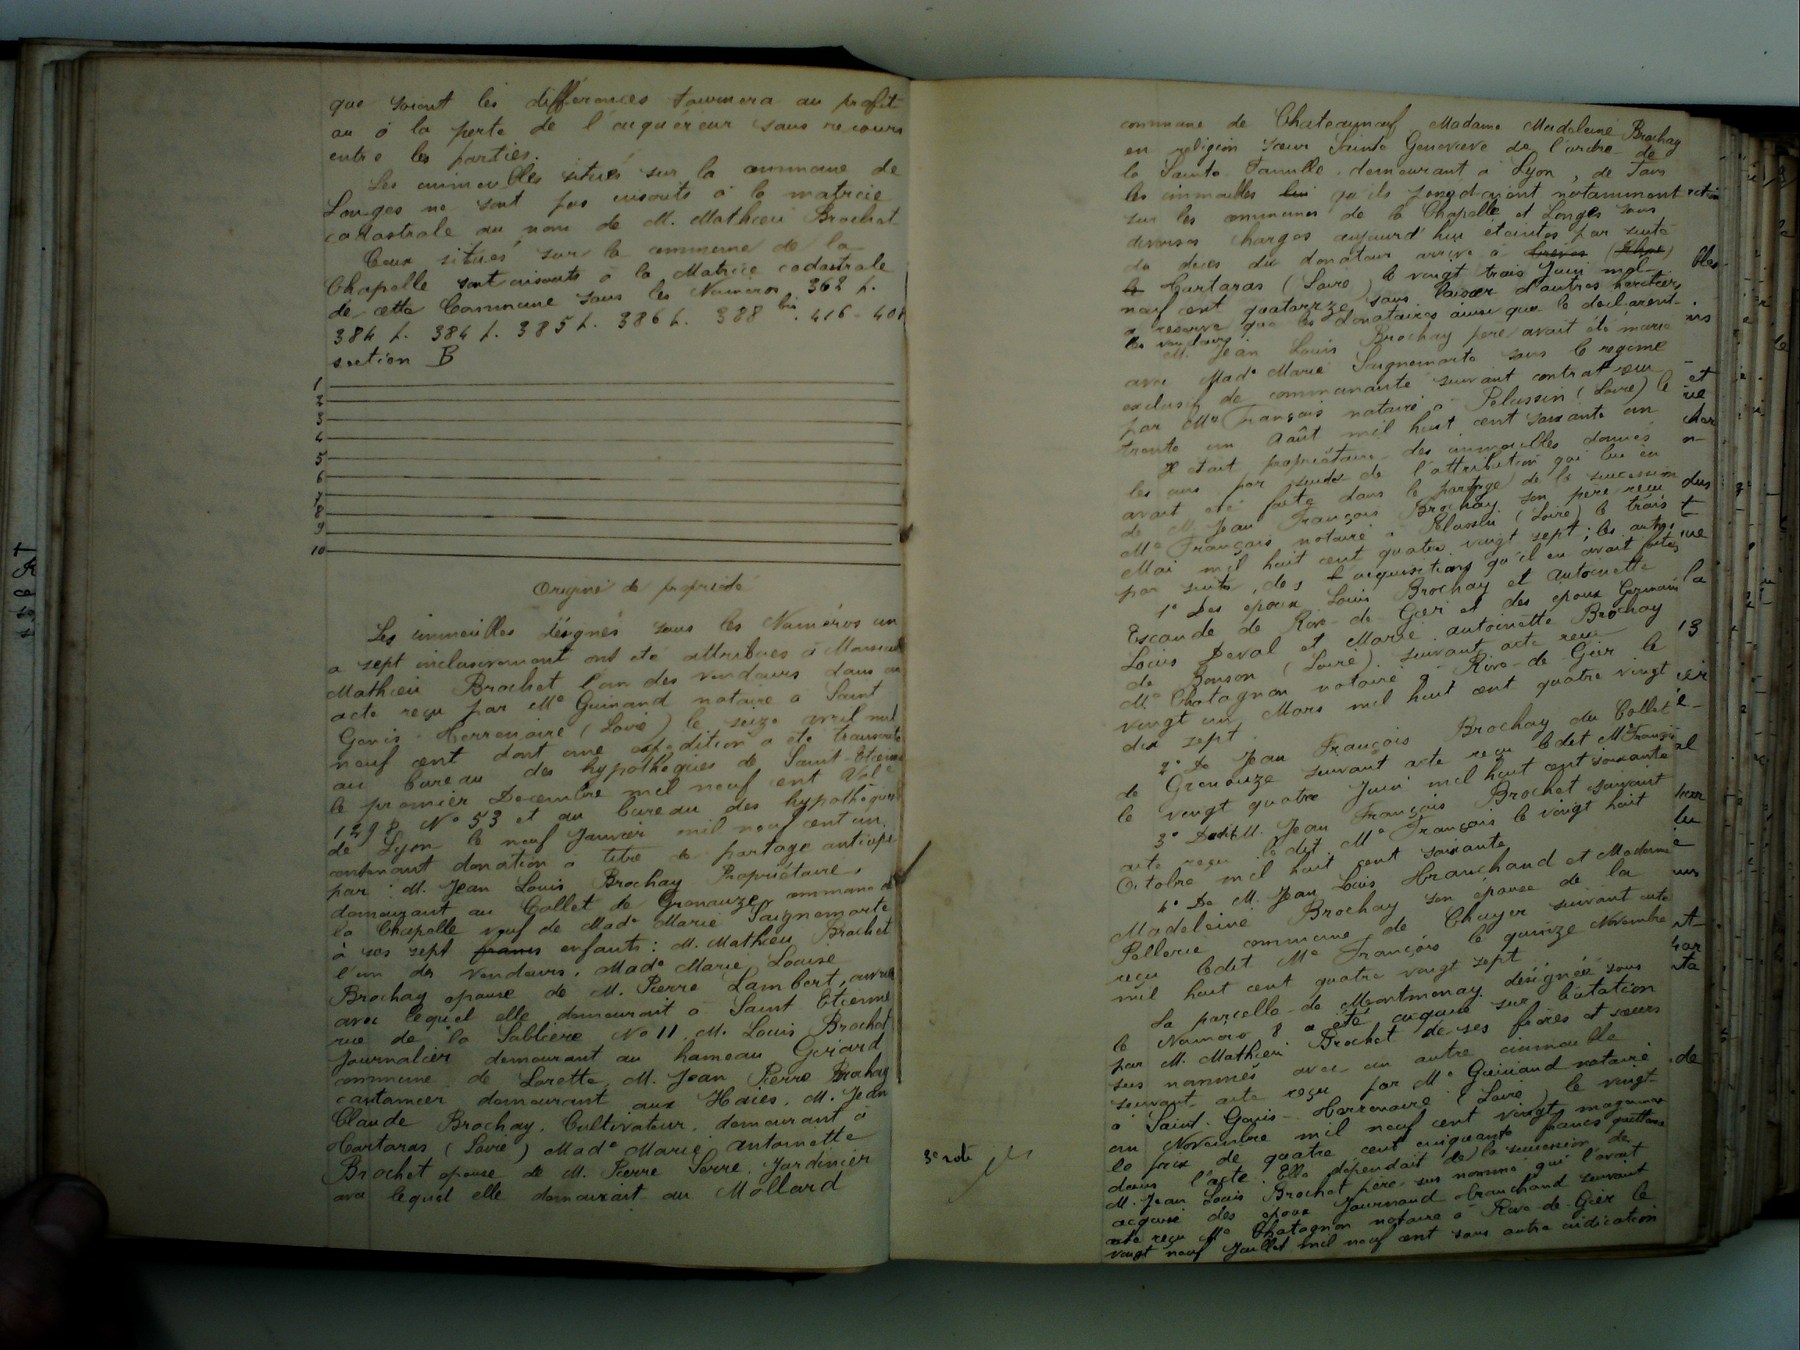 que soient les différences tournera au profit
ou à la perte de l'acquéreur sans recours
entre les parties.
Les immeubles situés sur la commune de
Longes ne sont pas inscrits à la matrice
cadastrale au nom de M. Mathieu Brochet
Ceux situés sur la commune de la
Chapelle sont inscrits à la Matrice cadastrale
de cette Commune sous les Numéros 362 p.
384 p. 384 p. 385 p. 386 p. 388 bis. 416 - 401
section B
1
2
3
4
5
6
7
8
9
10
Origine de propriété
Les immeubles désignés sous les Numéros un
a sept inclusivement ont été attribués à Monsieur
Mathieu Brochet l'un des vendeurs dans un
acte reçu par Me Guinand notaire à Saint
Genis-Terrenoire (Loire) le seize avril mil
neuf cent dont une expédition a été transcrite
au bureau des hypothèques de Saint-Etienne
le premier Decembre mil neuf cent Vol.
1298 No 53 et au bureau des hypothèques
de Lyon le neuf Janvier mil neuf cent un
contenant donation à titre de partage anticipé
par : M. Jean Louis Brochay Propriétaire,
demeurant au Collet de Grenouze, commune de
la Chapelle veuf de Made Marie Saignemorte
à ses sept enfants : M. Mathieu Brochet
l'un des vendeurs, Made Marie Louise
Brochay épouse de M. Pierre Lambert, ouvrier
avec lequel elle demeurait à Saint Etienne
rue de la Sablière No 11, M. Louis Brochet
Journalier demeurant au hameau Girard
commune de Lorette, M. Jean Pierre Brochay
cantonnier demeurant aux Haies, M. Jean
Claude Brochay, Cultivateur, demeurant à
Tartaras (Loire) Made Marie Antoinette
Brochet épouse de M. Pierre Serre, Jardinier
avec lequel elle demeurait au Mollard
3e role
commune de Chateauneuf Madame Madeleine Brochay
en religion sœur Sainte Geneviève de l'ordre de
la Sainte Famille demeurant à Lyon, de tous
les immeubles qu'ils possédaient notamment
sur les communes de la Chapelle et Longes sous
diverses charges aujourd'hui éteintes par suite
du décès du donateur arrivé à
Tartaras (Loire) le vingt trois Juin mil
neuf cent quatorze sans laisser d'autres héritiers
a réserve que les donataires ainsi que le déclarent
les vendeurs
M. Jean Louis Brochay père avait été marié
avec Made Marie Saignemorte sous le régime
exclusif de communauté suivant contrat reçu
par Me François notaire à Pelussin (Loire) le
trente un Août mil huit cent soixante un
Il était propriétaire des immeubles donnés
les uns par suite de l'attribution qui lui en
avait été faite dans le partage de la succession
de M. Jean François Brochay son père reçu
Me François notaire à Pelussin (Loire) le trois
Mai mil huit cent quatre vingt sept ; les autres
par suite des acquisitions qu'il en avait faites
1° Des époux Louis Brochay et Antoinette
Escande de Rive-de-Gier et des époux Germain
Louis Deval et Marie Antoinette Brochay
de Bonson (Loire) suivant acte reçu
Me Chatagnon notaire à Rive-de-Gier le
vingt un Mars mil huit cent quatre vingt
dix sept.
2° De Jean François Brochay du Collet
de Grenouze suivant acte reçu ledit Me François
le vingt quatre Juin mil huit cent soixante
3° Dudit M. Jean François Brochet suivant
acte reçu ledit Me François le vingt huit
Octobre mil huit cent soixante
4° De M. Jean Louis Tranchand et Madame
Madeleine Brochay son épouse de la
Pellerie commune de Chuyer suivant acte
reçu ledit Me François le quinze Novembre
mil huit cent quatre vingt sept
La parcelle de Montmenay désignée sous
le Numero 8 a été acquise sur licitation
par M. Mathieu Brochet de ses frères et sœurs
sus nommés avec un autre immeuble
suivant acte reçu par Me Guinand notaire
à Saint-Genis-Terrenoire (Loire) le vingt
un Novembre mil neuf cent vingt moyennant
le prix de quatre cent cinquante francs quittancé
dans l'acte. Elle dépendait de la succession de
M. Jean Louis Brochet père sus nommé qui l'avait
acquise des époux Journoud Tranchand suivant
acte reçu Me Chatagnon notaire à Rive-de-Gier le
vingt neuf Juillet mil neuf cent sans autre indication